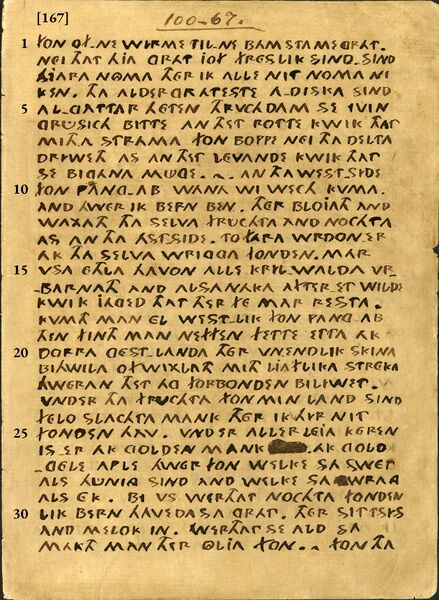 [167] 100-67.
1 FON OF.NE WIRME TIL NE BAM STAME GRAT.
NEI THAT HJA GRAT JOF TREFLIK SIND. SIND
HJARA NOMA THER IK ALLE NIT NOMA NI
KEN. THA ALDERGRATESTE A-DISKA SIND
5 AL-GATTAR HETEN THRUCHDAM SE IVIN
GRUSICH BITTE AN THET ROTTE KWIK THAT
MITHA STRAMA FON BOPPE NEI THA DELTA
DRIWET AS AN THET LEVANDE KWIK THAT
SE BIGANA MUGE. -. AN THA WEST-SIDE
10 FON PANG-AB WANA WI WECH KUMA.
AND HWER IK BERN BEN. THER BLOJATH AND
WAXATH THA SELVA FRUCHTA AND NOCHTA
AS AN THA ASTSIDE. TO FARA WRDON ER
AK THA SELVA WRIGGA FONDEN. MAR
15 VSA ETHLA HAVON ALLE KRYL-WALDA VR-
BARNATH AND ALSANAKA AFTER ET WILDE
KWIK JAGED THAT THER FE MAR RESTA.
KVMTH MAN EL WEST-LIK FON PANG AB
THEN FINTH MAN NEFFEN FETTE ETTA AK
20 DORRA GEST-LANDA THER VNENDLIK SKINA
BIHWILA OFWIXLATH MITH LIAFLIKA STREKA
HWERAN THET AG FORBONDEN BILIWET.
VNDER THA FRUCHTA FON MIN LAND SIND
FELO SLACHTA MANK THER IK HYR NIT
25 FONDEN HAV. VNDER ALLERLEJA KEREN
IS ER AK GOLDEN MANK AK GOLD-
GELE APLE HWER FON WELKE SA SWET
ALS HUNIG SIND AND WELKE SA WRAG
ALS EK. BI VS WERTHAT NOCHTA FONDEN
30 LIK BERN HAVEDA SA GRAT. THER SIT TSYS
AND MELOK IN. WERTHAT SE ALD SA
MAKTH MAN THER OLJA FON. .. FON THA